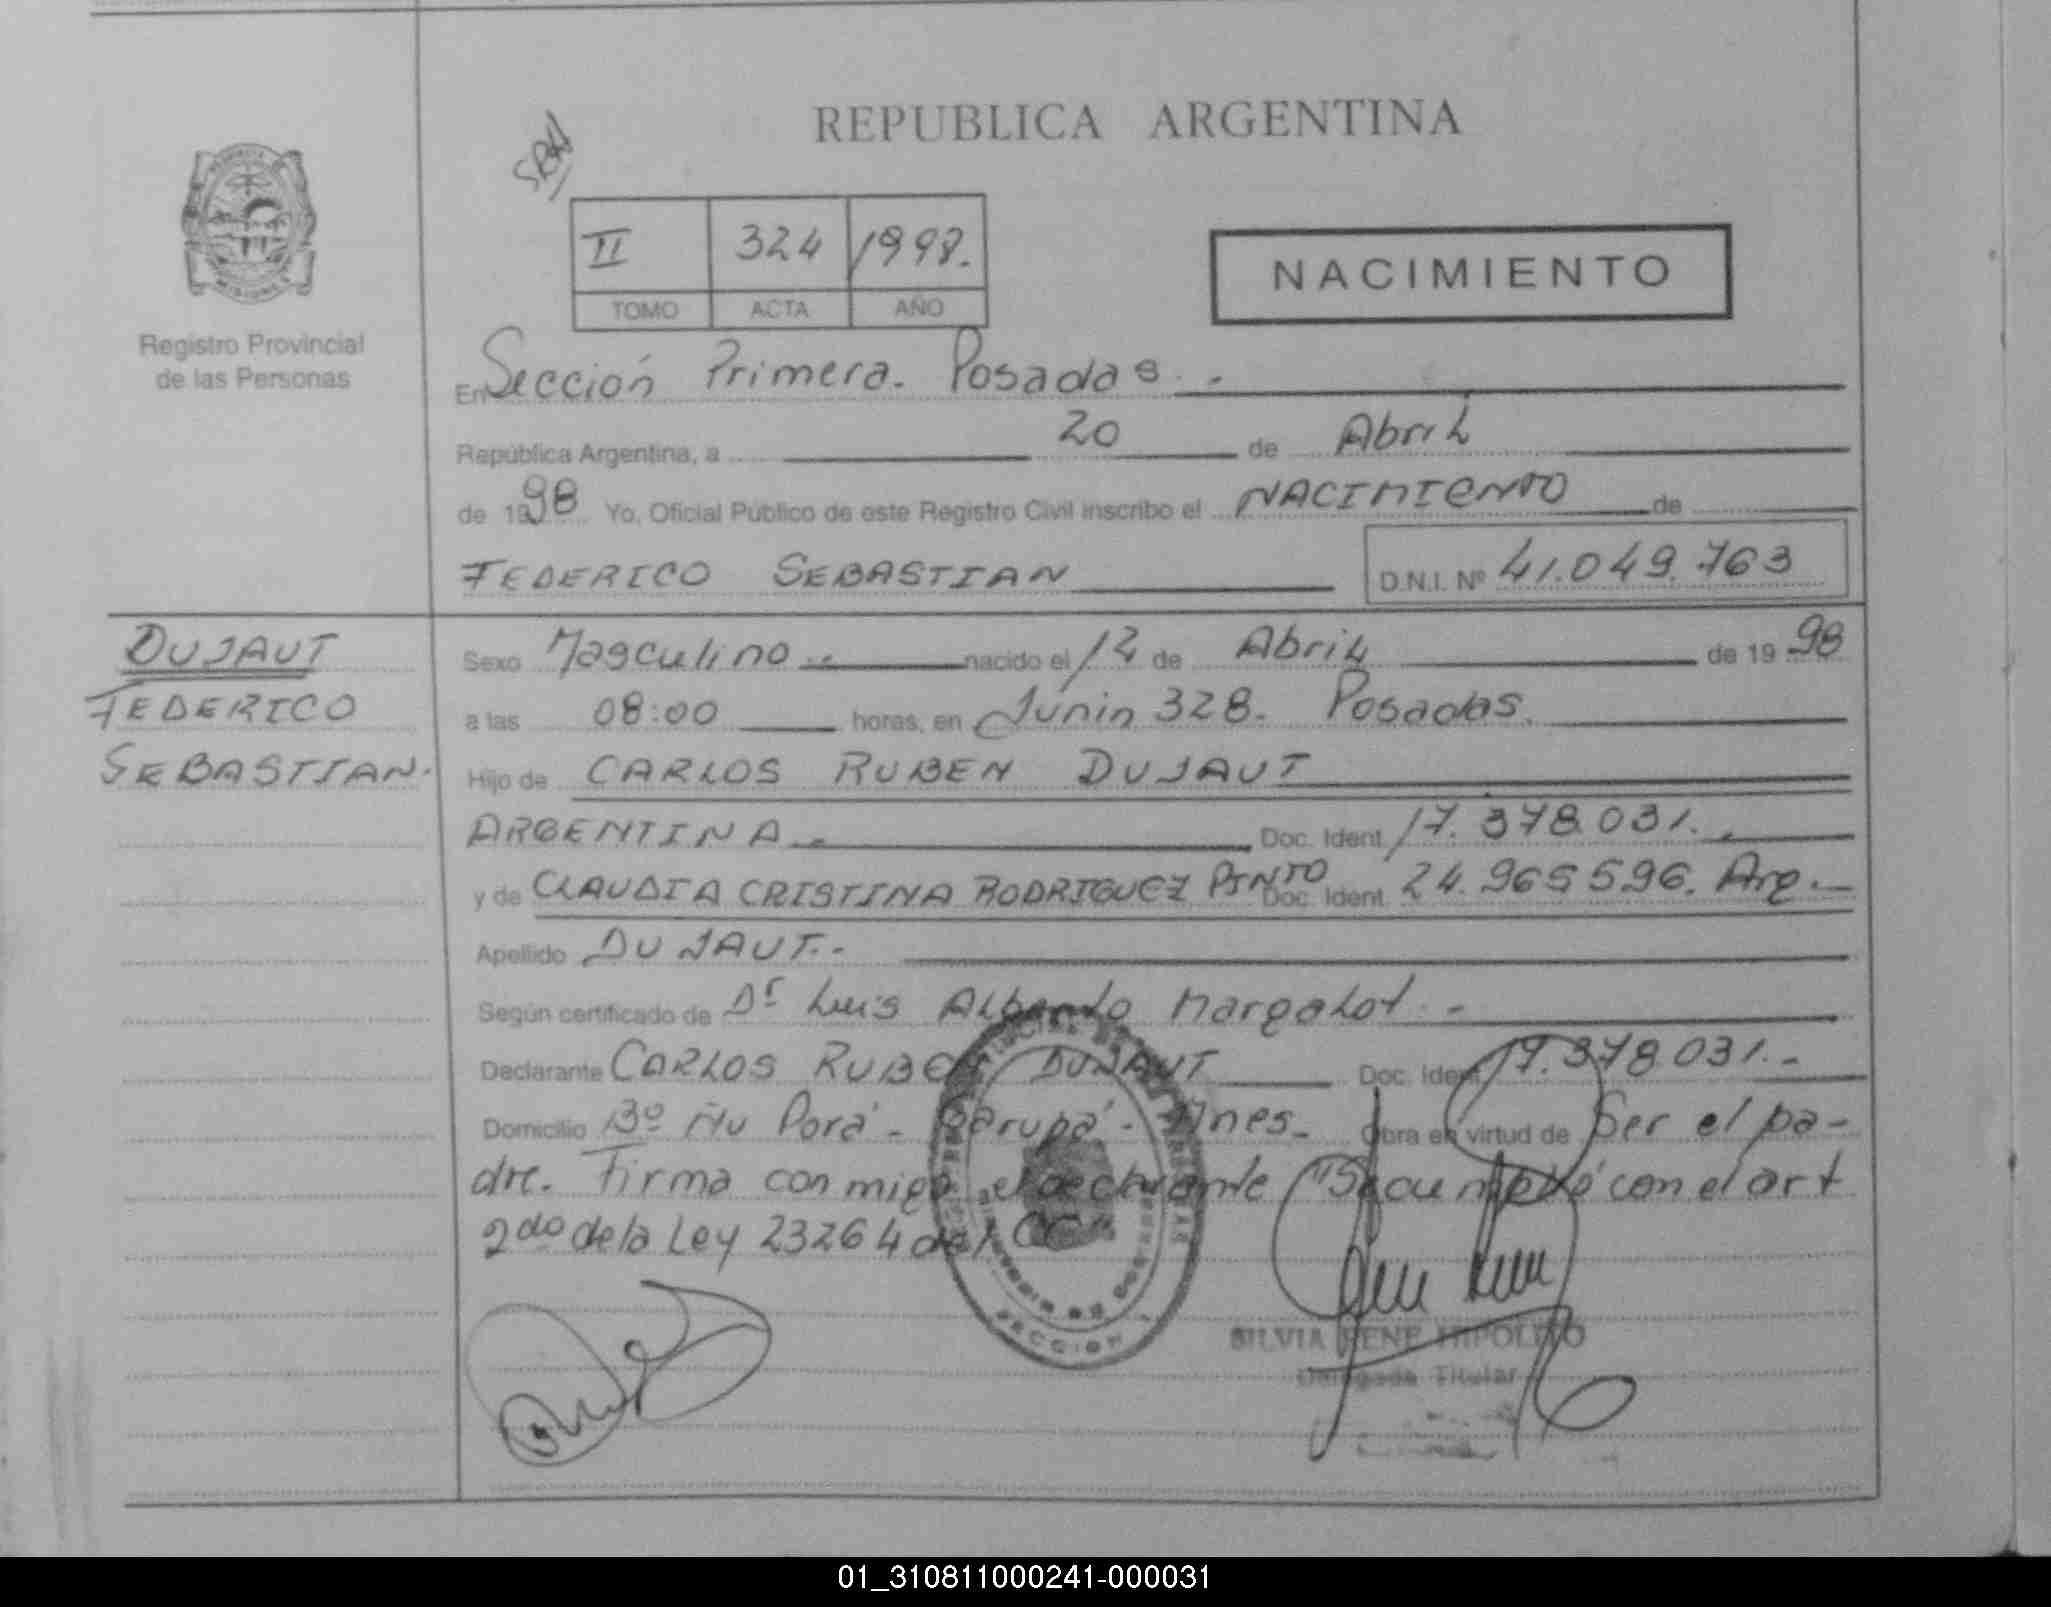 REPUBLICA ARGENTINA
II 324 1998.
TOMO ACTA AÑO
NACIMIENTO
Registro Provincial
de las Personas
En Sección Primera. Posadas. -
República Argentina, a 20 de Abril
de 1998 Yo, Oficial Público de este Registro Civil inscribo el NACIMIENTO de
FEDERICO SEBASTIAN D.N.I. Nº 41.049.763
DUJAUT
FEDERICO
SEBASTIAN.
Sexo Masculino nacido el 12 de Abril de 1998
a las 08:00 horas, en Junin 328. Posadas.
Hijo de CARLOS RUBEN DUJAUT
ARGENTINA. Doc. Ident. 17.378.031.
y de CLAUDIA CRISTINA RODRIGUEZ PINTO Doc. Ident. 24.965596. Arg.
Apellido DUJAUT.-
Según certificado de Dr Luis Alberto Margalot -
Declarante CARLOS RUBEN DUJAUT Doc. Ident. 17.378.031.-
Domicilio Bº Ñu Porá - Garupá - Mnes. Obra en virtud de Ser el pa-
dre. Firma con migo el declarante con el art
2do de la Ley 23264 del CC"
SECCION 1
SILVIA RENE HIPOLITO
Delegada Titular
01_310811000241-000031